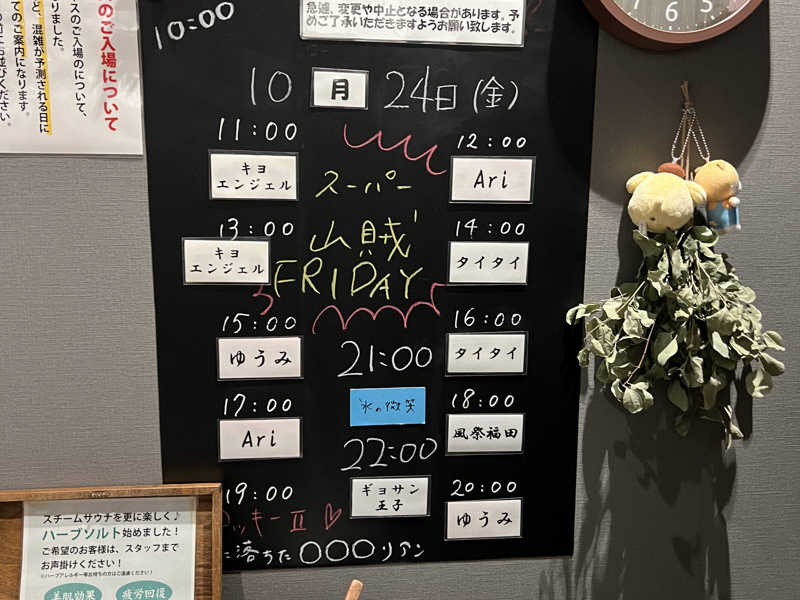 のご入場について
スのご入場のについて、
りました。
ど、混雑が予測される日に
てのご案内になります。
急遽、変更や中止となる場合があります。予
めご了承いただきますようお願い致します。
10:00
10 月 24日(金)
11:00
キヨ
エンジェル
12:00
Ari
スーパー
山賊
FRIDAY
13:00
キヨ
エンジェル
14:00
タイタイ
15:00
ゆうみ
16:00
タイタイ
17:00
Ari
18:00
風祭福田
19:00
ッキーⅡ
20:00
ゆうみ
21:00
氷の微笑
22:00
ギョサン
王子
落ちた〇〇〇リアン
スチームサウナを更に楽しく♪
ハーブソルト始めました!
ご希望のお客様は、スタッフまで
お声掛けください!
※ハーブアレルギー等お持ちの方はご遠慮ください!
美肌効果
疲労回復
6
5